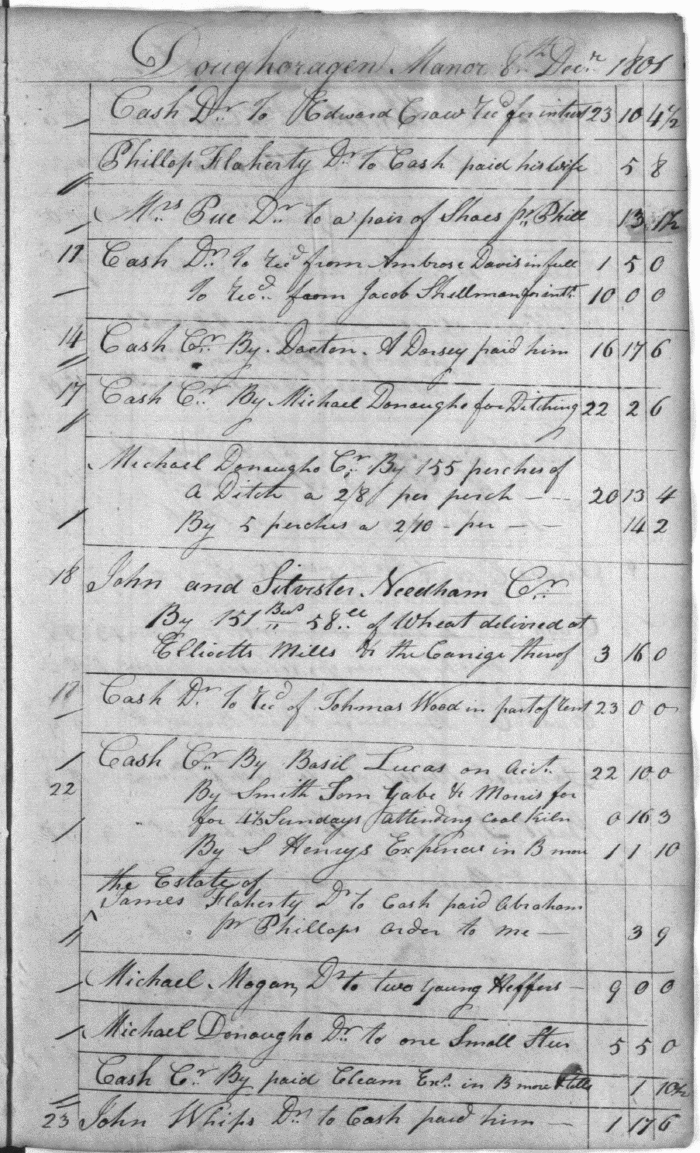 Doughoragen Manor 8th Decr 1801
Cash Dr To Edward Crow recd for intrest 23 10 4½
Phillop Flaherty Dr to Cash paid his wife 5 8
Mrs Pue Dr to a pair of Shoes pr Phill 13 1½
17 Cash Dr To recd from Ambrose Davis in full 1 5 0
To recd from Jacob Shellman for intt 10 0 0
14 Cash Cr By Docton A Dorsey paid him 16 17 6
17 Cash Cr By Michael Donaugho for Ditching 22 2 6
Michael Donaugho Cr By 155 perches of
a Ditch a 2/8 per perch — 20 13 4
By 5 perches a 2/10 - per — — 14 2
18 John and Silvester Needham Cr
By 151 Bus 58 of Wheat delivired at
Ellicotts Mills & the Carrige therof 3 16 0
Cash Dr To recd of Tohmas Wood in part of rent 23 0 0
Cash Cr By Basil Lucas on acct. 22 10 0
22 By Smith Tom Gabe & Morris for
for 4½ Sundays attending coal kiln 0 16 3
By S Henrys Expences in B more 1 1 10
the Estate of
James Flaherty Dr to Cash paid Abraham
pr Phillops order to me — 3 9
Michael Mogan, Dr to two young Heffers — 9 0 0
Michael Donaugho Dr to one Small Steer 5 5 0
Cash Cr By paid Cleam Exs. in B more 1 10½
23 John Whips Dr to Cash paid him — 1 17 6